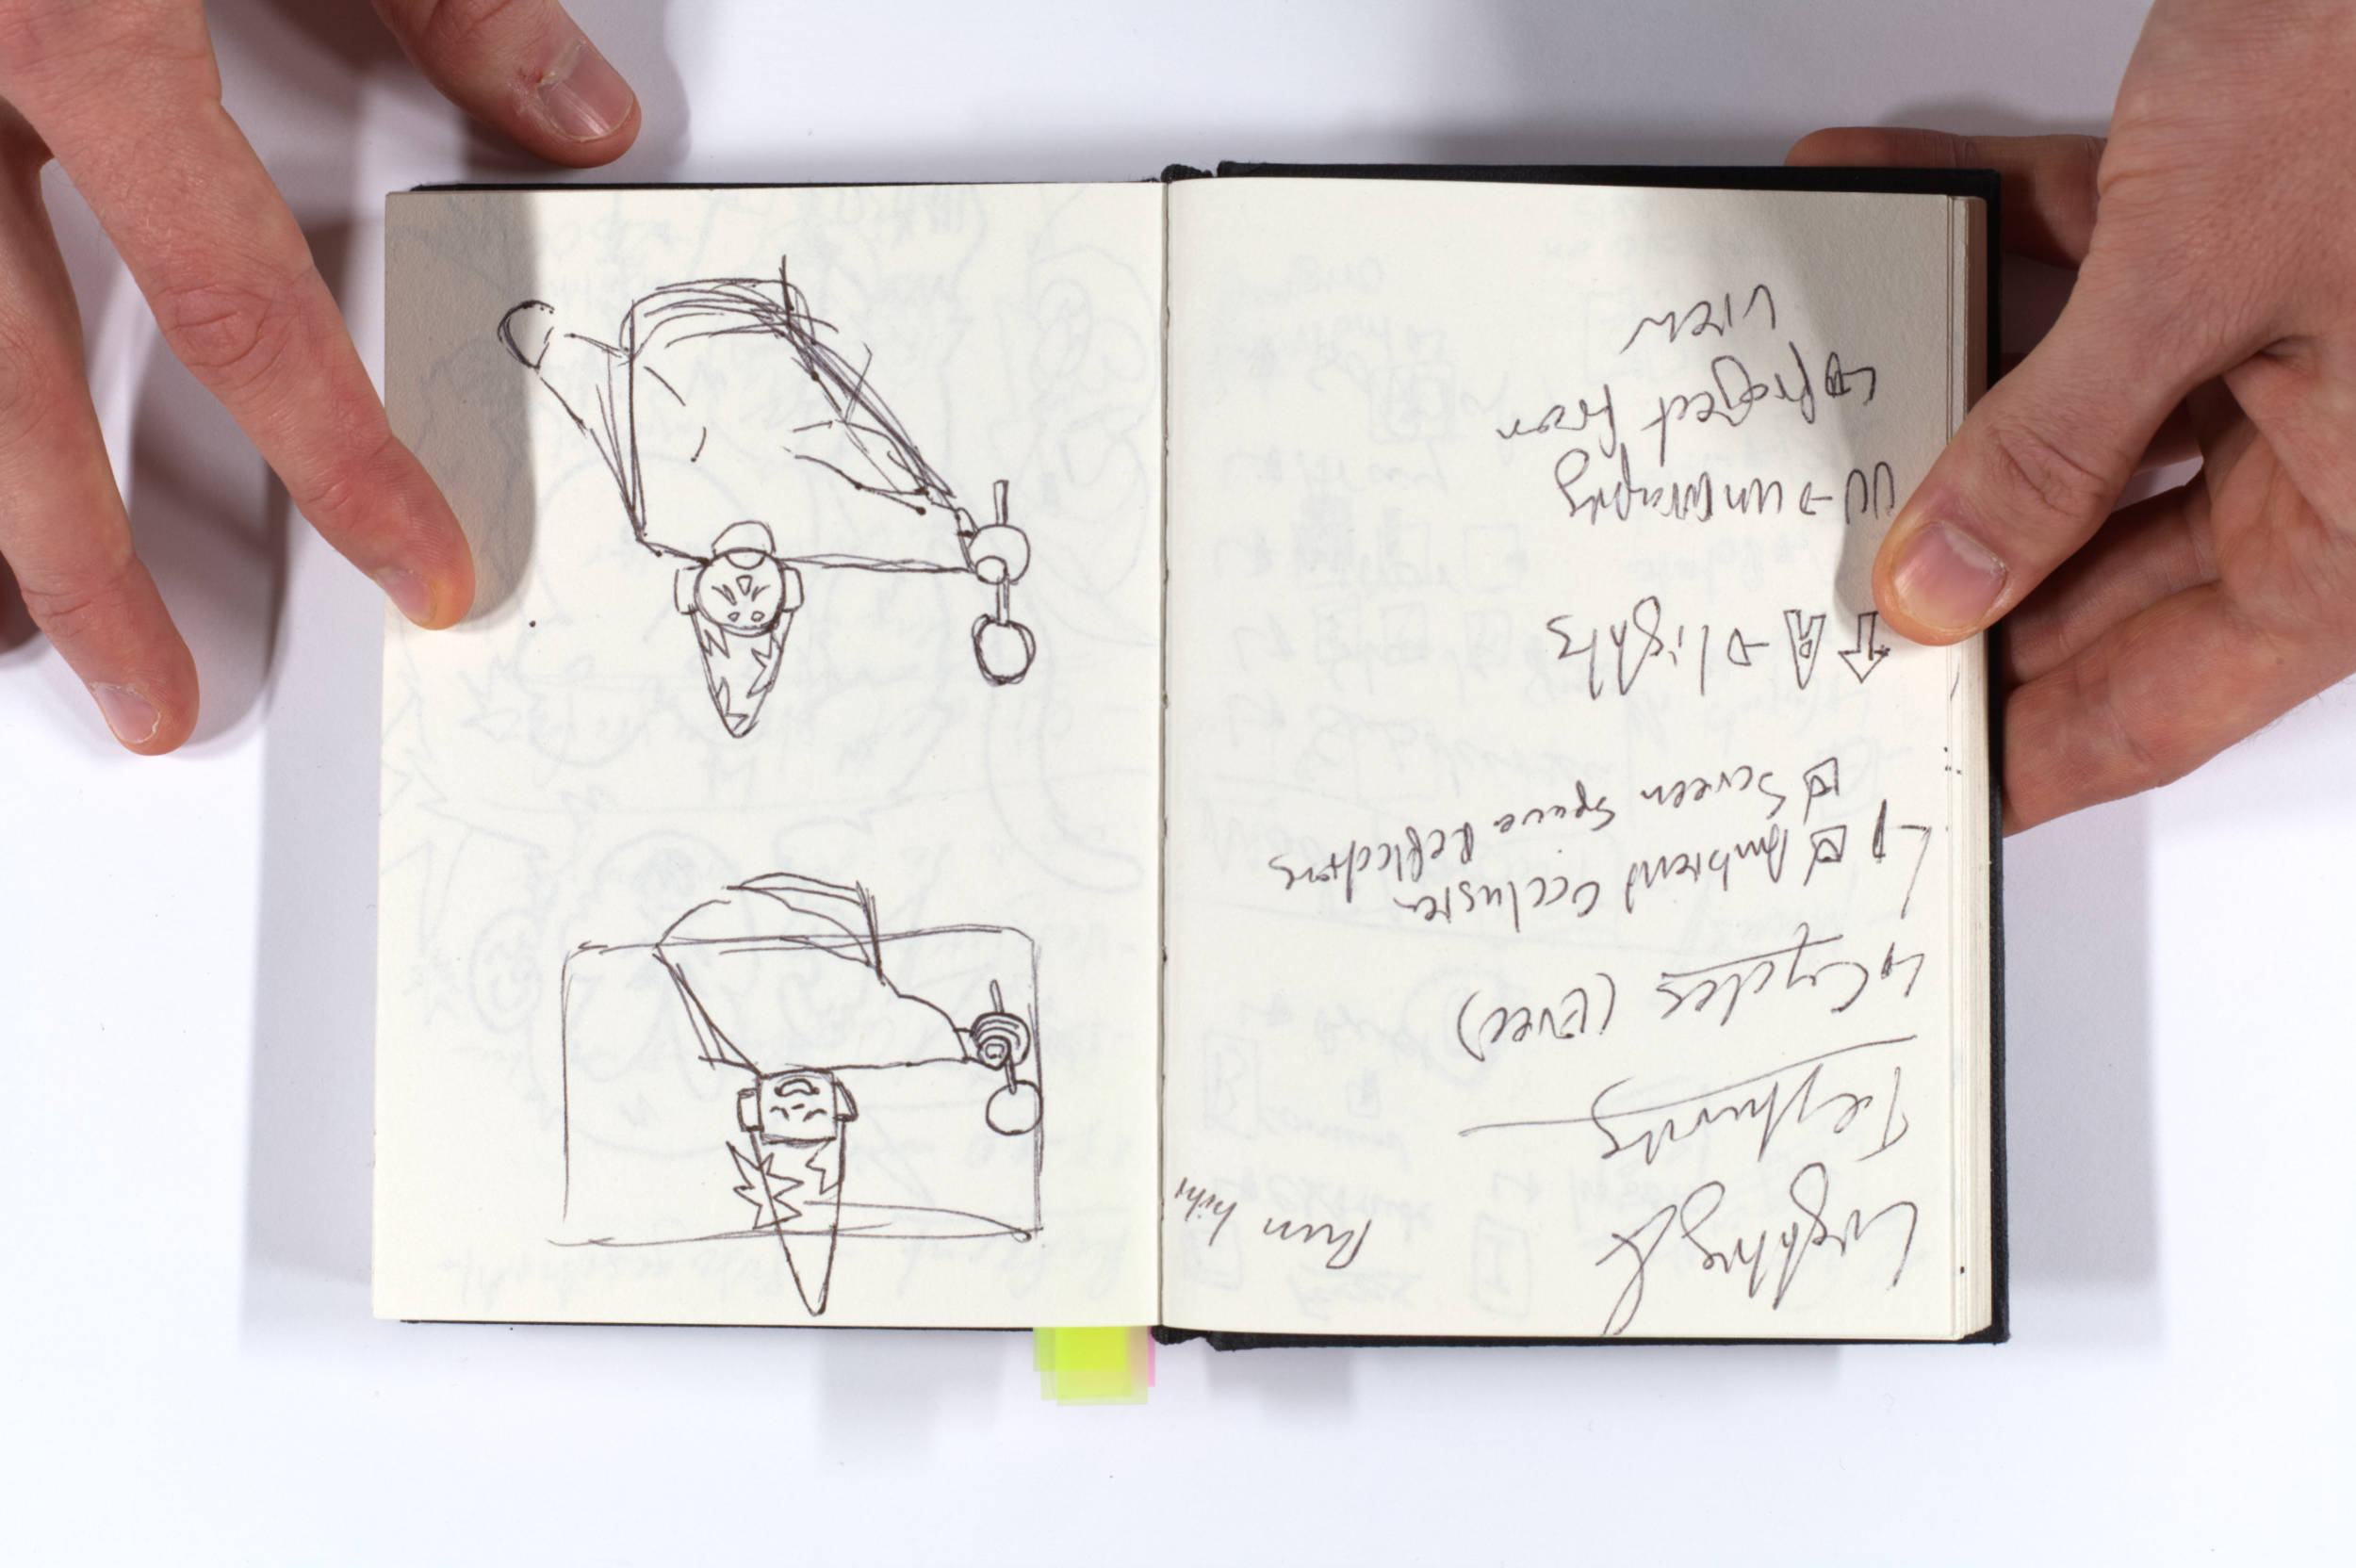 Lighting &
Texturing
↳ Cycles (Evee)
↳ ☑ Ambient Occlusion
☑ Screen Space Reflections
⇧ A → lights
UV → unwrapping
↳ Project from
view
hihi